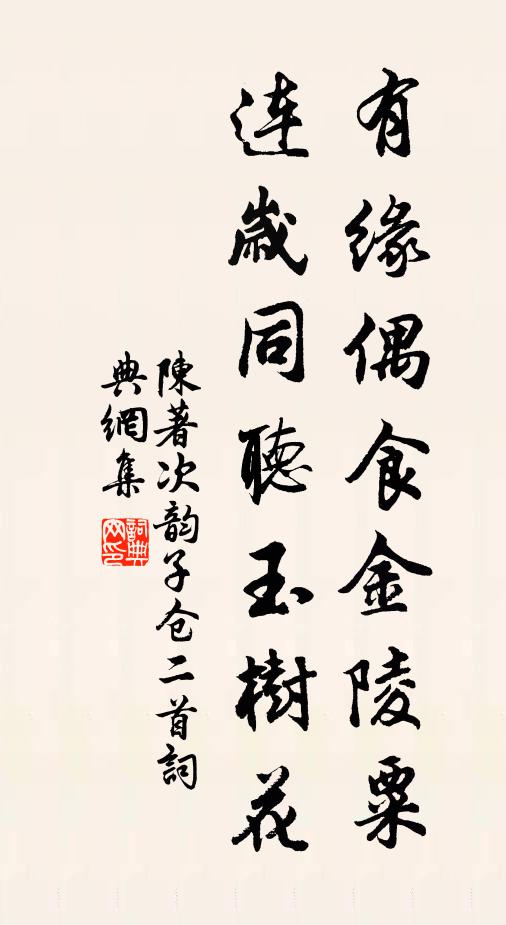 有緣偶食金陵粟
連歲同聽玉樹花
陳著次韵子仓二首詞
典網集
詞典
网印